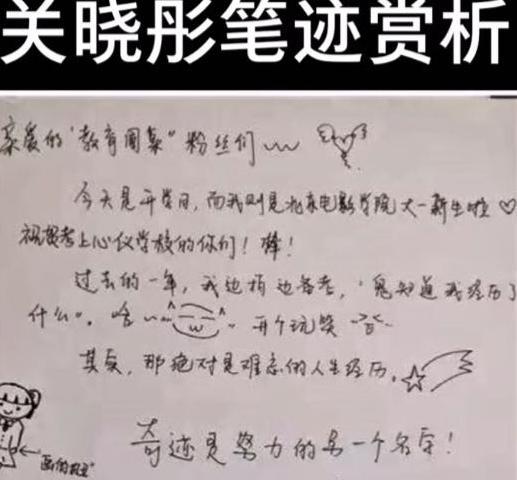 关晓彤笔迹赏析
亲爱的“教育圆桌”粉丝们
今天是开学日，而我则是北京电影学院大一新生啦♡
祝贺考上心仪学校的你们！棒！
过去的一年，我边拍边备考，“鬼知道我经历了
什么”。哈 开个玩笑
其实，那绝对是难忘的人生经历。
奇迹是努力的另一个名字！